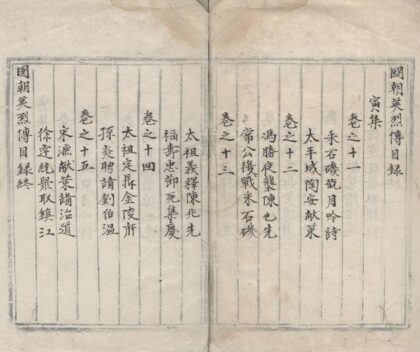 國朝英烈傳目録
寅集
卷之十一
采石磯觀月吟詩
太平城陶安献策
卷之十二
馮勝夜襲陳也先
常公復戰采石磯
卷之十三
太祖義釋陳兆先
福壽忠節死集慶
卷之十四
太祖定鼎金陵府
孫炎聘請劉伯温
卷之十五
宋濂献策講治道
徐達統衆取鎮江
國朝英烈傳目録終